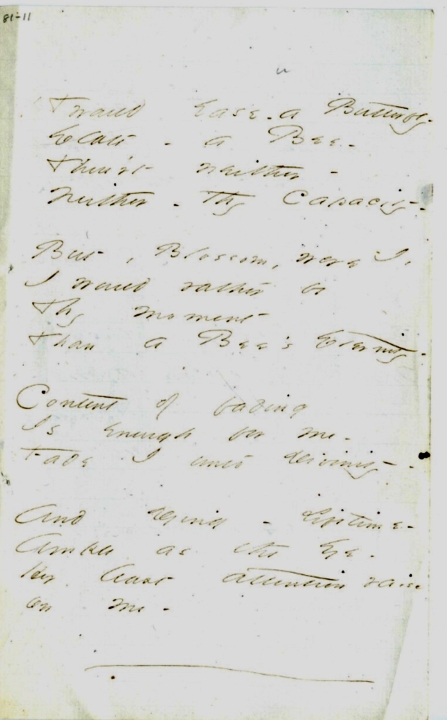 81-11
'Twould ease - a Butterfly -
Elate - a Bee -
Thou'rt neither -
Neither - thy Capacity -
But, Blossom, were I,
I would rather be
Thy moment
Than a Bee's Eternity -
Content of fading
Is enough for me -
Fade I unto Divinity -
And Dying - Lifetime -
Ample as the Eye -
Her least attention raise
on me -